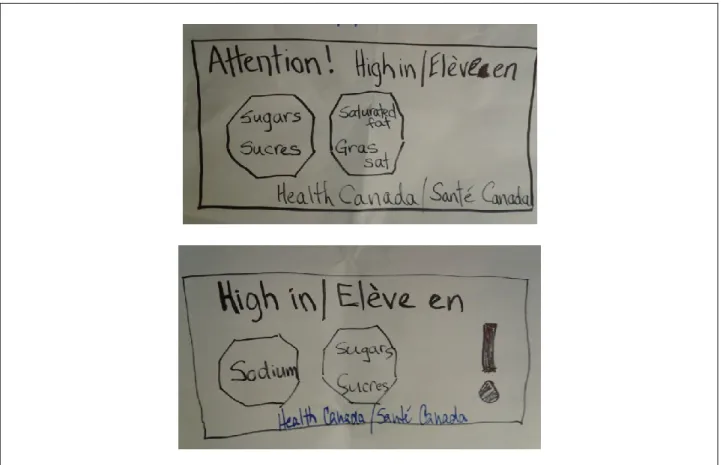 Attention! High in/Elève en
Sugars
Sucres
Saturated
fat
Gras
sat
Health Canada/Santé Canada
High in/Elève en
Sodium
Sugars
Sucres
!
Health Canada/Santé Canada